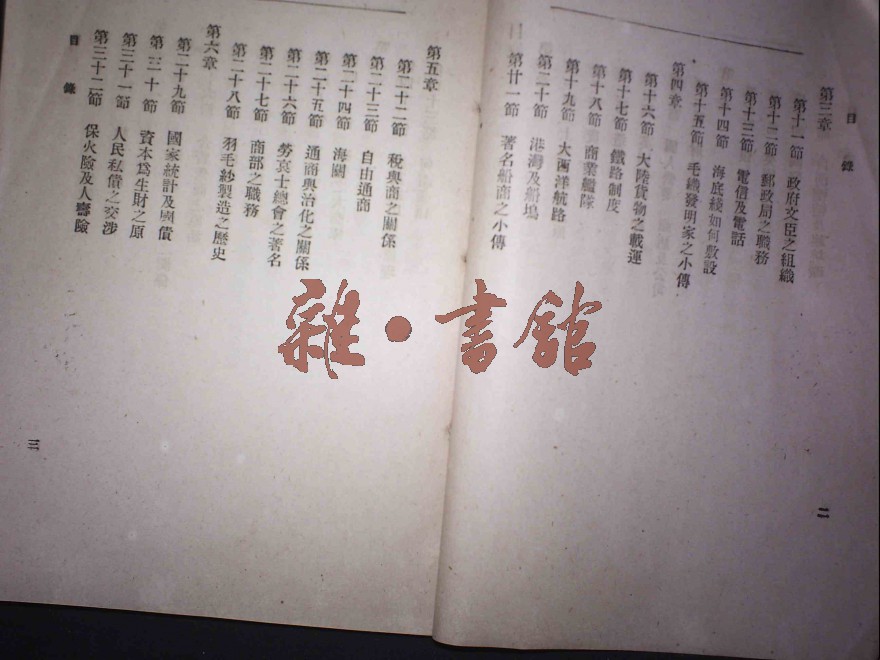 目錄
第三章
第十一節 政府文臣之組織
第十二節 郵政局之職務
第十三節 電信及電話
第十四節 海底綫如何敷設
第十五節 毛織發明家之小傳
第四章
第十六節 大陸貨物之載運
第十七節 鐵路制度
第十八節 商業艦隊
第十九節 大西洋航路
第二十節 港灣及船塢
第廿一節 著名船商之小傳
二
第五章
第二十二節 稅與商之關係
第二十三節 自由通商
第二十四節 海關
第二十五節 通商與治化之關係
第二十六節 勞哀士總會之著名
第二十七節 商部之職務
第二十八節 羽毛紗製造之歷史
第六章
第二十九節 國家統計及國債
第三十節 資本爲生財之原
第三十一節 人民私債之交涉
第三十二節 保火險及人壽險
目錄
三
雜·書館